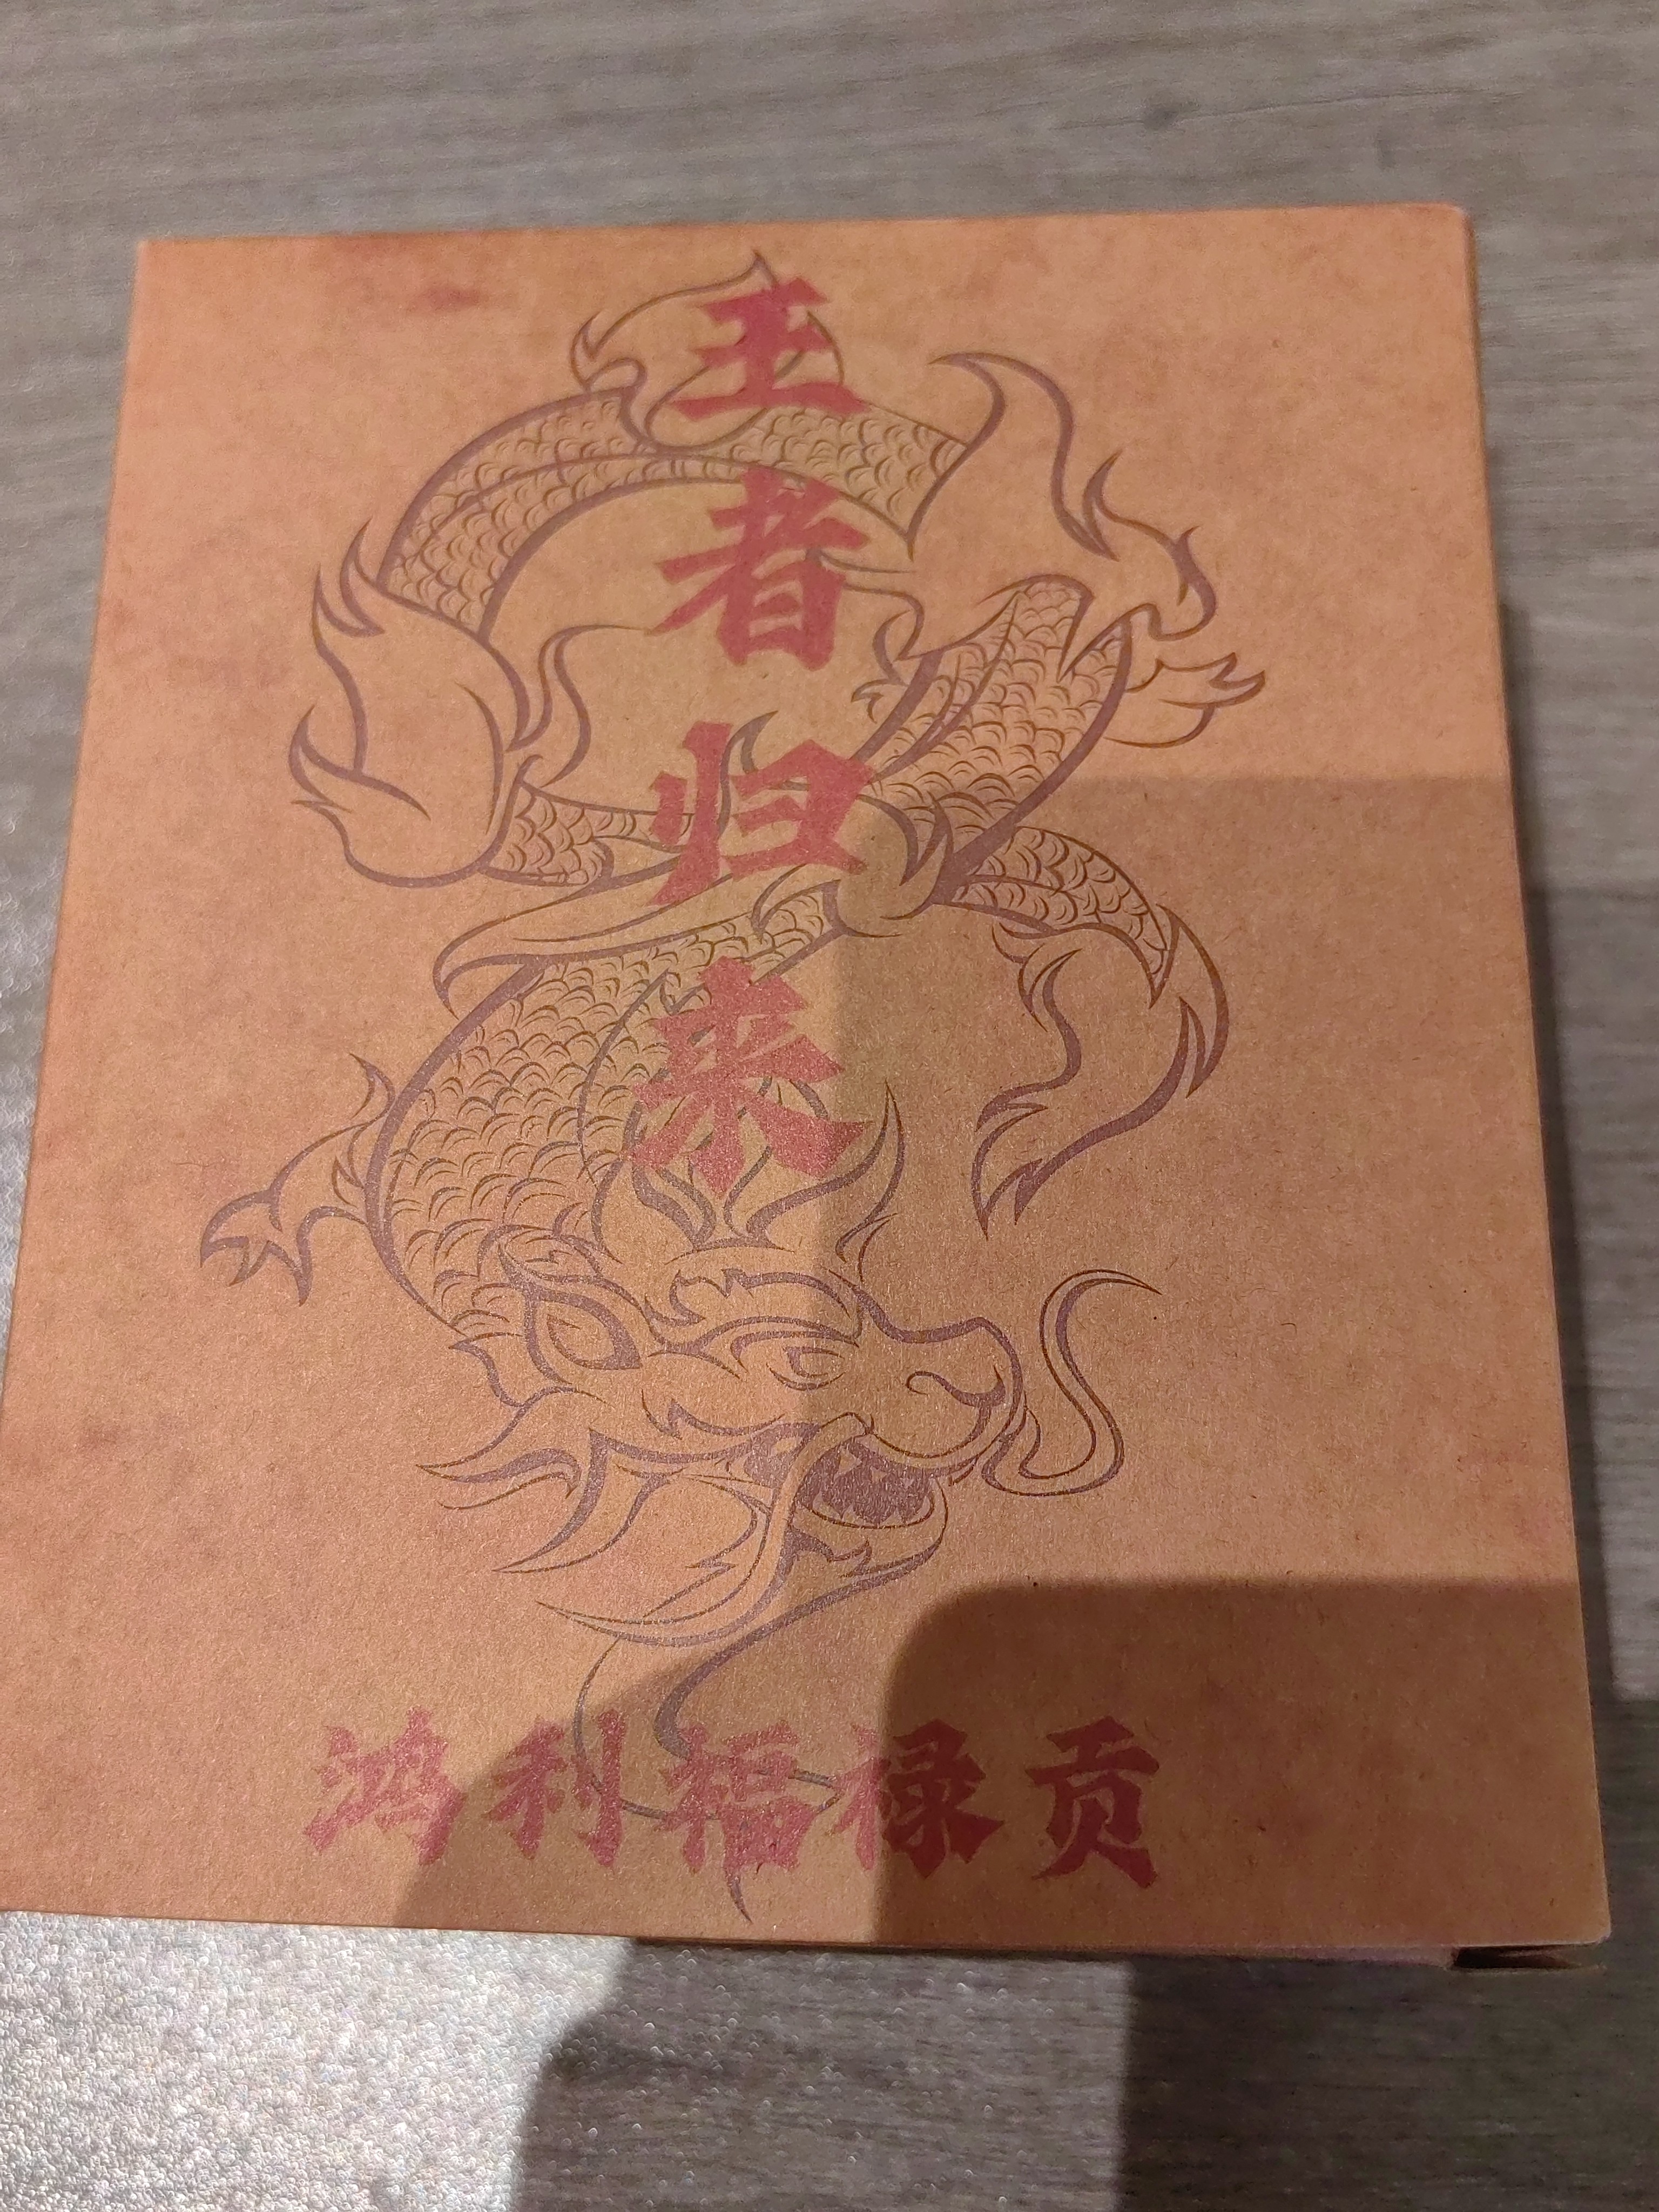 王者归来
鸿利福禄贡